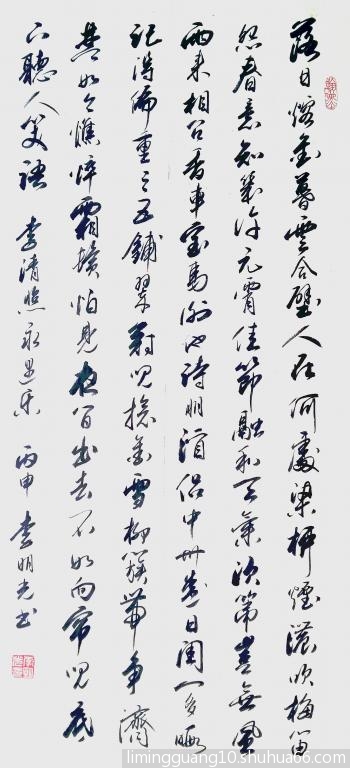 落日熔金暮雲合璧人在何處染柳煙濃吹梅笛
怨春意知幾許元宵佳節融和天氣次第豈無風
雨來相召香車寶馬謝他詩朋酒侶中州盛日閨門多暇
記得偏重三五鋪翠冠兒撚金雪柳簇帶爭濟
楚如今憔悴霜鬢怕見夜間出去不如向簾兒底
下聽人笑語 李清照永遇樂 丙申 李明光書
limingguang10.shuhua66.com